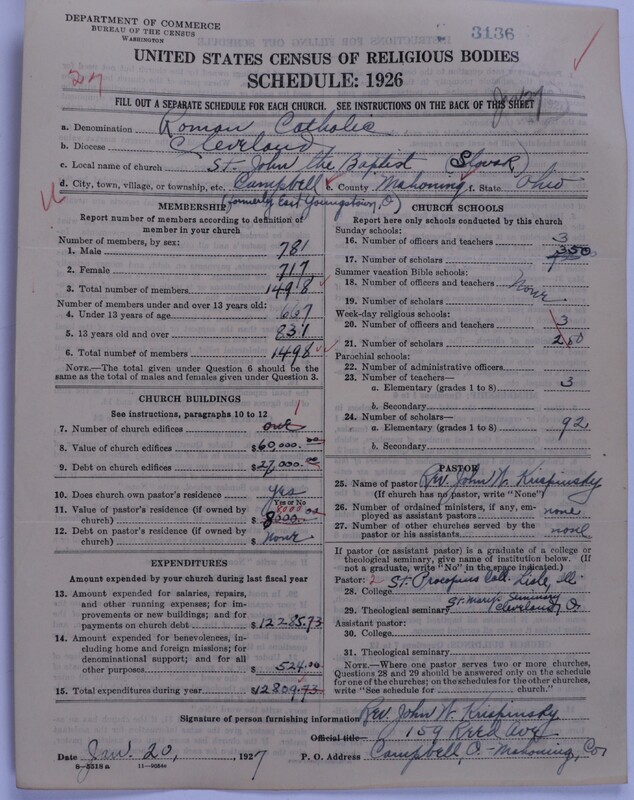 DEPARTMENT OF COMMERCE
BUREAU OF THE CENSUS
WASHINGTON
3136
UNITED STATES CENSUS OF RELIGIOUS BODIES
SCHEDULE: 1926
FILL OUT A SEPARATE SCHEDULE FOR EACH CHURCH. SEE INSTRUCTIONS ON THE BACK OF THIS SHEET
a. Denomination Roman Catholic
b. Diocese Cleveland
c. Local name of church St. John the Baptist (Slovak)
d. City, town, village, or township, etc. Campbell County Mahoning State Ohio
(formerly East Youngstown, O)
MEMBERSHIP
Report number of members according to definition of member in your church
Number of members, by sex:
1. Male 781
2. Female 717
3. Total number of members 1498
Number of members under and over 13 years old:
4. Under 13 years of age 667
5. 13 years old and over 831
6. Total number of members 1498
NOTE.—The total given under Question 6 should be the same as the total of males and females given under Question 3.
CHURCH BUILDINGS
See instructions, paragraphs 10 to 12
7. Number of church edifices one 1
8. Value of church edifices $60,000.00
9. Debt on church edifices $27,000.00
10. Does church own pastor's residence yes
Yes or No
11. Value of pastor's residence (if owned by church) $ 8000.00
12. Debt on pastor's residence (if owned by church) $ none
EXPENDITURES
Amount expended by your church during last fiscal year
13. Amount expended for salaries, repairs, and other running expenses; for improvements or new buildings; and for payments on church debt $12285.73
14. Amount expended for benevolences, including home and foreign missions; for denominational support; and for all other purposes $ 524.00
15. Total expenditures during year $12809.73
CHURCH SCHOOLS
Report here only schools conducted by this church
Sunday schools:
16. Number of officers and teachers 3
17. Number of scholars 350
Summer vacation Bible schools:
18. Number of officers and teachers None
19. Number of scholars
Week-day religious schools:
20. Number of officers and teachers 3
21. Number of scholars 260
Parochial schools:
22. Number of administrative officers
23. Number of teachers—
a. Elementary (grades 1 to 8) 3
b. Secondary
24. Number of scholars—
a. Elementary (grades 1 to 8) 92
b. Secondary
PASTOR
25. Name of pastor Rev. John W. Krispinsky
(If church has no pastor, write "None")
26. Number of ordained ministers, if any, employed as assistant pastors none
27. Number of other churches served by the pastor or his assistants none
If pastor (or assistant pastor) is a graduate of a college or theological seminary, give name of institution below. (If not a graduate, write "No" in the space indicated.)
Pastor: 2
28. College St. Procopius Coll. Lisle, Ill.
29. Theological seminary St. Marys Seminary Cleveland O.
Assistant pastor:
30. College
31. Theological seminary
NOTE.—Where one pastor serves two or more churches, Questions 28 and 29 should be answered only on the schedule for one of the churches; on the schedules for the other churches, write "See schedule for ........ church."
Signature of person furnishing information Rev. John W. Krispinsky
Official title 159 Reed Ave
Date Jan. 20, 1927 P. O. Address Campbell, O. - Mahoning, Co.
8—5518a 11—9354